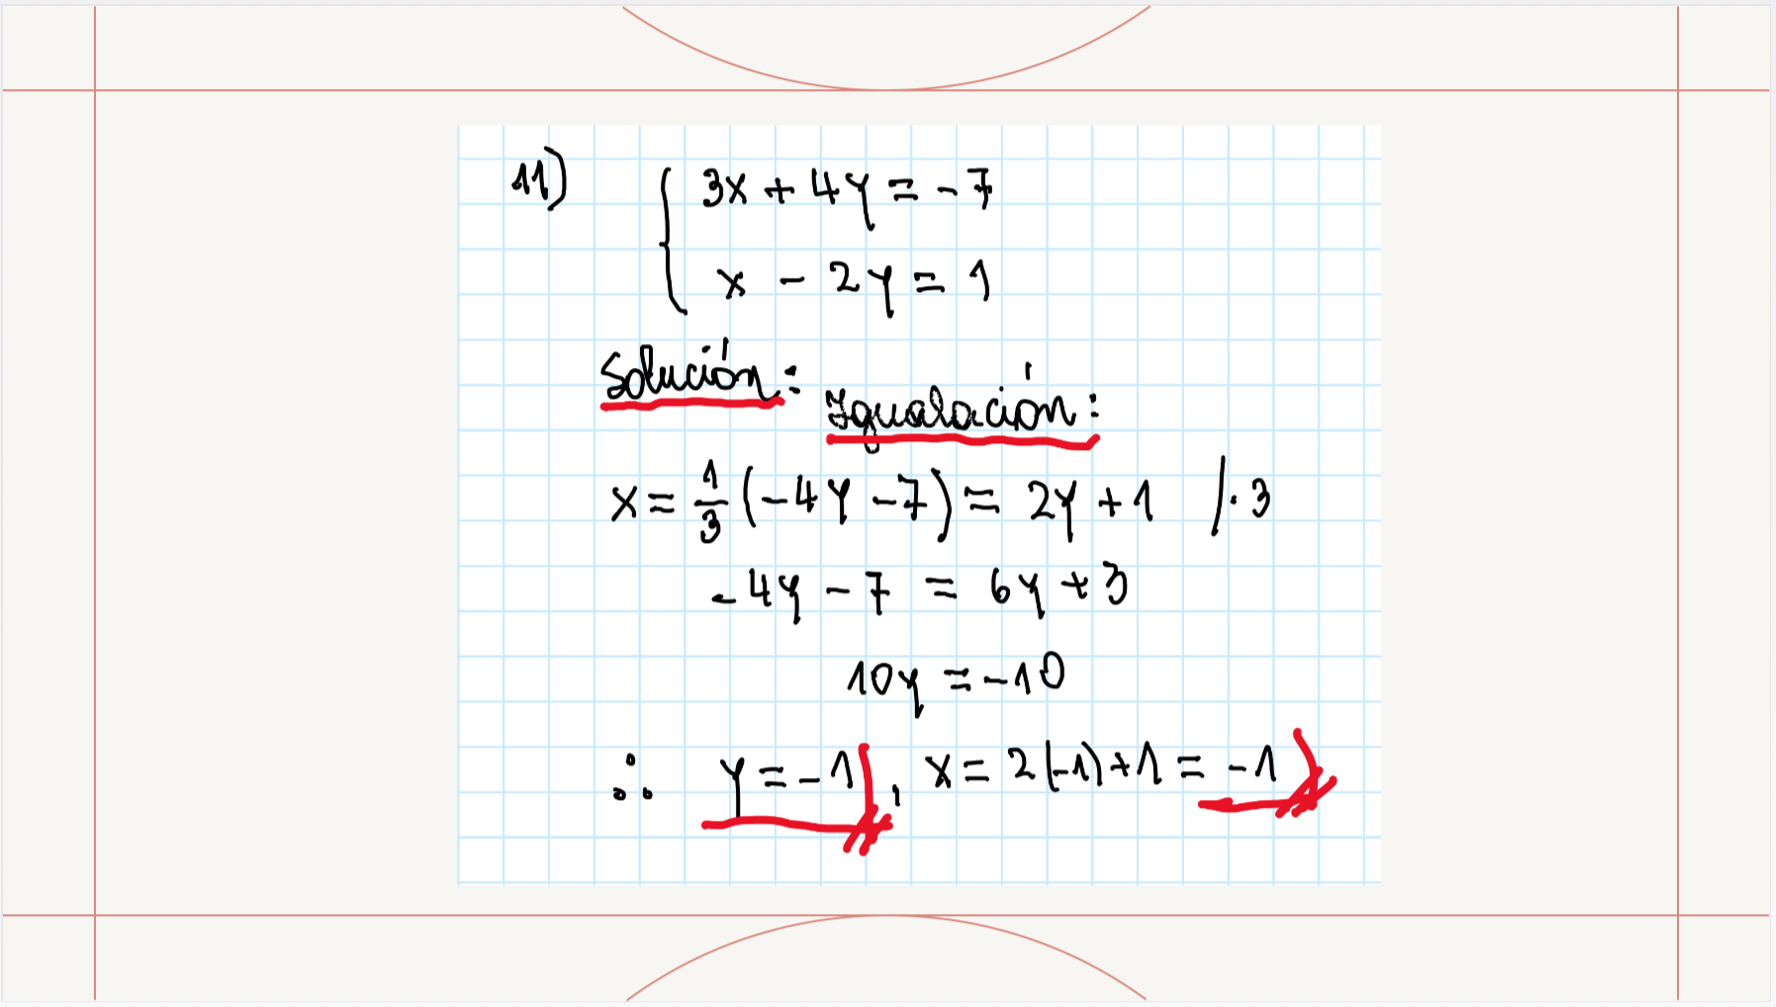 11) 3x + 4y = -7
x - 2y = 1
Solución:
Igualación:
x = 1/3 (-4y - 7) = 2y + 1 / · 3
-4y - 7 = 6y + 3
10y = -10
∴ y = -1, x = 2(-1) + 1 = -1